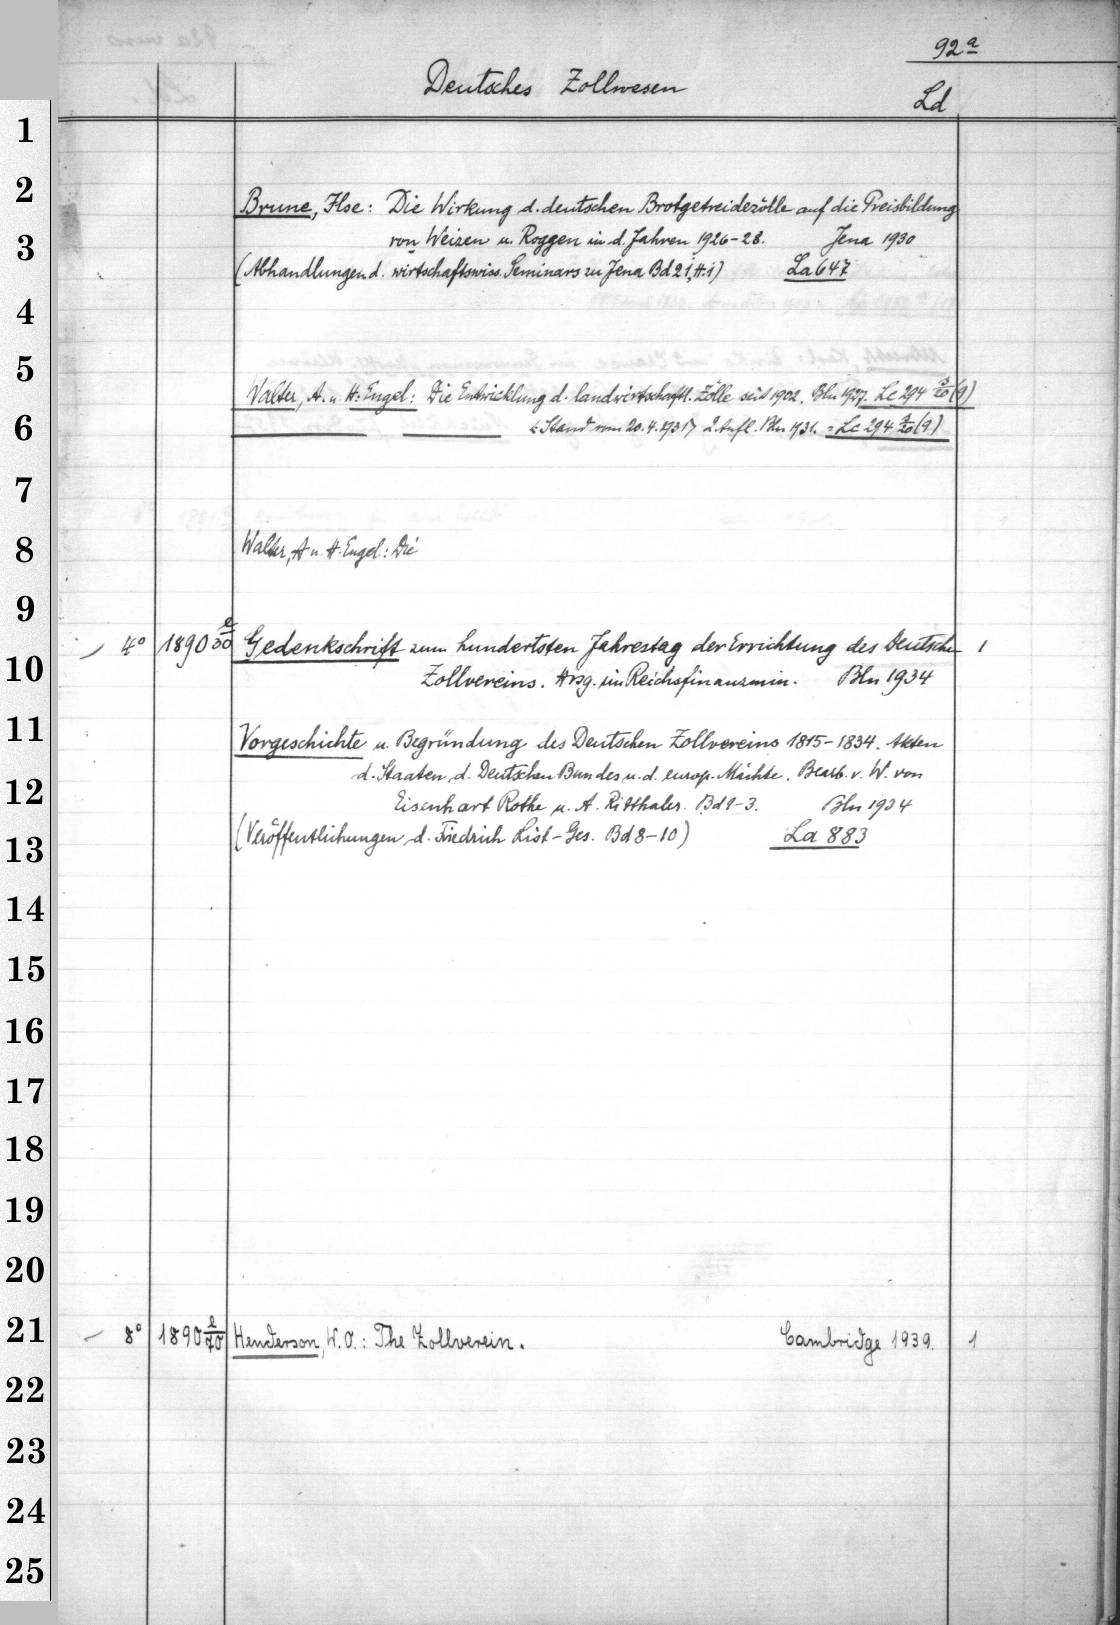 92a
Deutsches Zollwesen
Ld
1
2
Brune, Ilse: Die Wirkung d. deutschen Brotgetreidezölle auf die Preisbildung
3
von Weizen u. Roggen in d. Jahren 1926-28. Jena 1930
(Abhandlungen d. wirtschaftswiss. Seminars zu Jena Bd 21, H. 1) La 647
4
5
Walter, A. u. H. Engel: Die Entwicklung d. landwirtschaftl. Zölle seit 1902. Bln 1927. Lc 294 s/20 (9)
6
Stand vom 20.4.1931> 2. Aufl. Bln 1931. = Lc 294 /20 (9)
7
8
Walter, A u. H. Engel: Die
9
4° 1890 e/30 Gedenkschrift zum hundertsten Jahrestag der Errichtung des Deutschen 1
10
Zollvereins. Hrsg. im Reichsfinanzmin. Bln 1934
11
Vorgeschichte u. Begründung des Deutschen Zollvereins 1815-1834. Akten
12
d. Staaten d. Deutschen Bundes u. d. europ. Mächte. Bearb. v. W. von
Eisenhart Rothe u. A. Ritthaler. Bd 1-3. Bln 1934
13
(Veröffentlichungen d. Friedrich List-Ges. Bd 8-10) La 883
14
15
16
17
18
19
20
21
8° 1890 e/70 Henderson, W. O.: The Zollverein. Cambridge 1939. 1
22
23
24
25